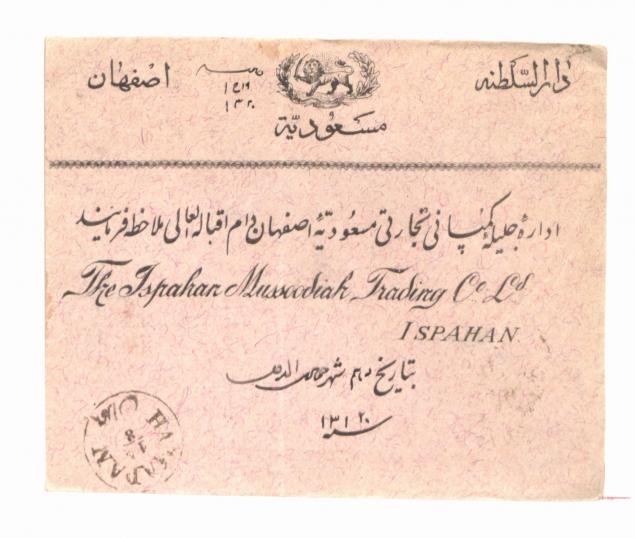 دارالسّلطنه اصفهان
۱۳۲۰
مسعودیّة
ادارهٔ جلیلهٔ کمپانی تجارتی مسعودیّهٔ اصفهان دام اقباله العالی ملاحظه فرمایند
The Ispahan Mussoodiah Trading Co. Ld.
ISPAHAN
بتاریخ شهر
۱۳۲۰